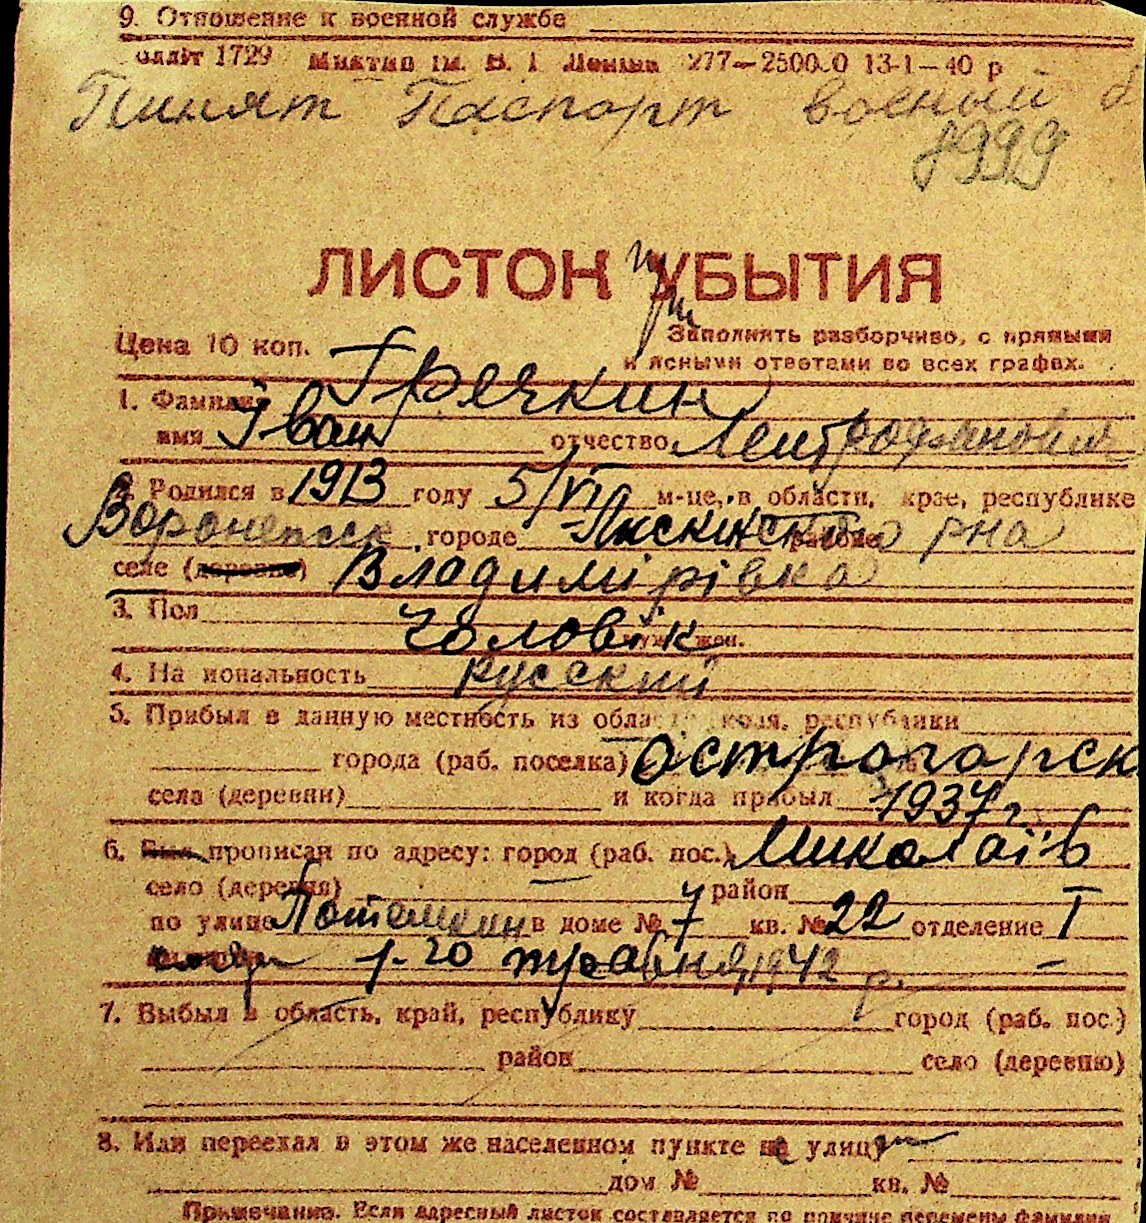 9. Отношение к военной службе
1729 ім. В. І. 13-1-40 р
Пинят Паспорт военый
8999
ЛИСТОК УБЫТИЯ
при
Цена 10 коп.
Заполнять разборчиво, с прямыми
и ясными ответами во всех графах.
1. Фамилия Гречкин
имя Іван отчество
2. Родился в 1913 году 5/VI м-це, в области, крае, республике
городе Лискинского рна
селе (деревне) Владимірівка
3. Пол Чоловік муж. жен.
4. Национальность русский
5. Прибыл в данную местность из области, края, республики
города (раб. поселка) Острогорск
села (деревни) и когда прибыл 1937 г.
6. Был прописан по адресу: город (раб. пос.) Миколаїв
село (деревня) район
по улице Потемкин в доме № 7 кв. № 22 отделение I
20 травня 1942 р. –
7. Выбыл в область, край, республику город (раб. пос.)
район село (деревню)
8. Или переехал в этом же населенном пункте на улицу
дом № кв. №
Примечание. Если адресный листок составляется по причине перемены фамилии